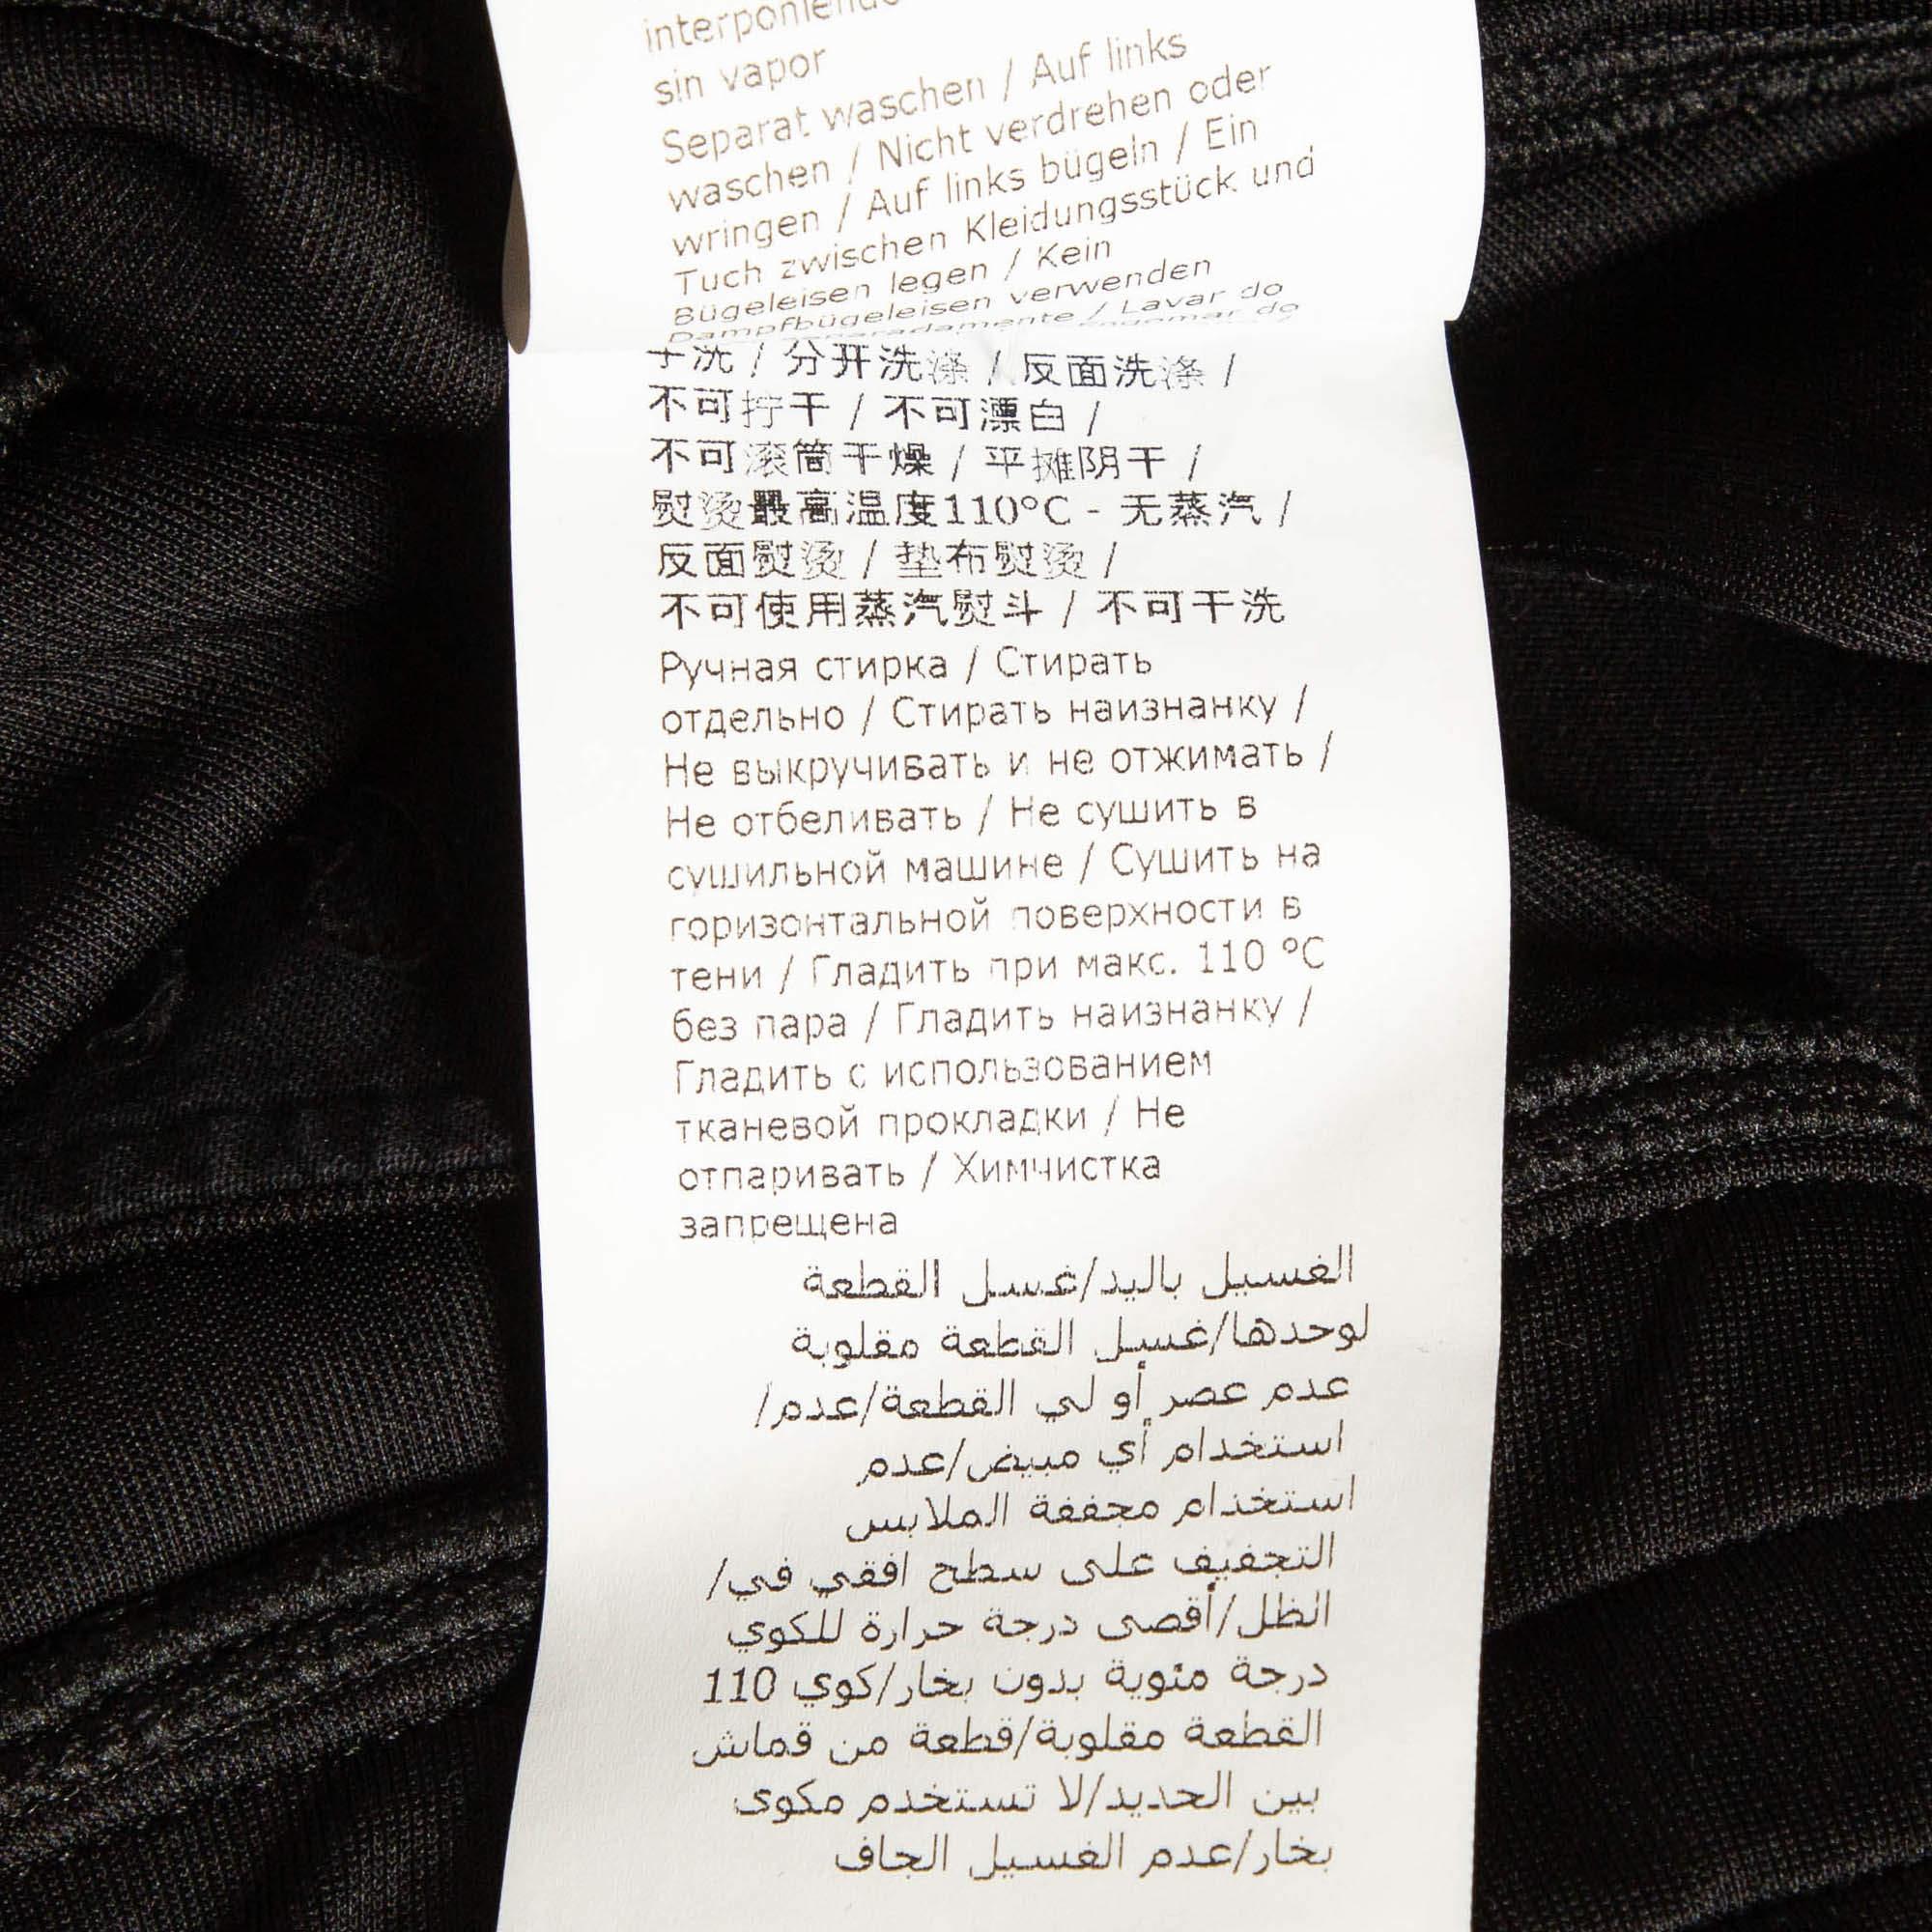 sin vapor
Separat waschen / Auf links
waschen / Nicht verdrehen oder
wringen / Auf links bügeln / Ein
Tuch zwischen Kleidungsstück und
Bügeleisen legen / Kein
Dampfbügeleisen verwenden
/ Lavar do
手洗 / 分开洗涤 / 反面洗涤 /
不可拧干 / 不可漂白 /
不可滚筒干燥 / 平摊阴干 /
熨烫最高温度110°C - 无蒸汽 /
反面熨烫 / 垫布熨烫 /
不可使用蒸汽熨斗 / 不可干洗
Ручная стирка / Стирать
отдельно / Стирать наизнанку /
Не выкручивать и не отжимать /
Не отбеливать / Не сушить в
сушильной машине / Сушить на
горизонтальной поверхности в
тени / Гладить при макс. 110 °C
без пара / Гладить наизнанку /
Гладить с использованием
тканевой прокладки / Не
отпаривать / Химчистка
запрещена
الغسيل باليد/غسل القطعة
لوحدها/غسيل القطعة مقلوبة
عدم عصر أو لي القطعة/عدم/
استخدام أي مبيض/عدم
استخدام مجففة الملابس
التجفيف على سطح افقي في/
الظل/أقصى درجة حرارة للكوي
درجة مئوية بدون بخار/كوي 110
القطعة مقلوبة/قطعة من قماش
بين الحديد/لا تستخدم مكوى
بخار/عدم الغسيل الجاف